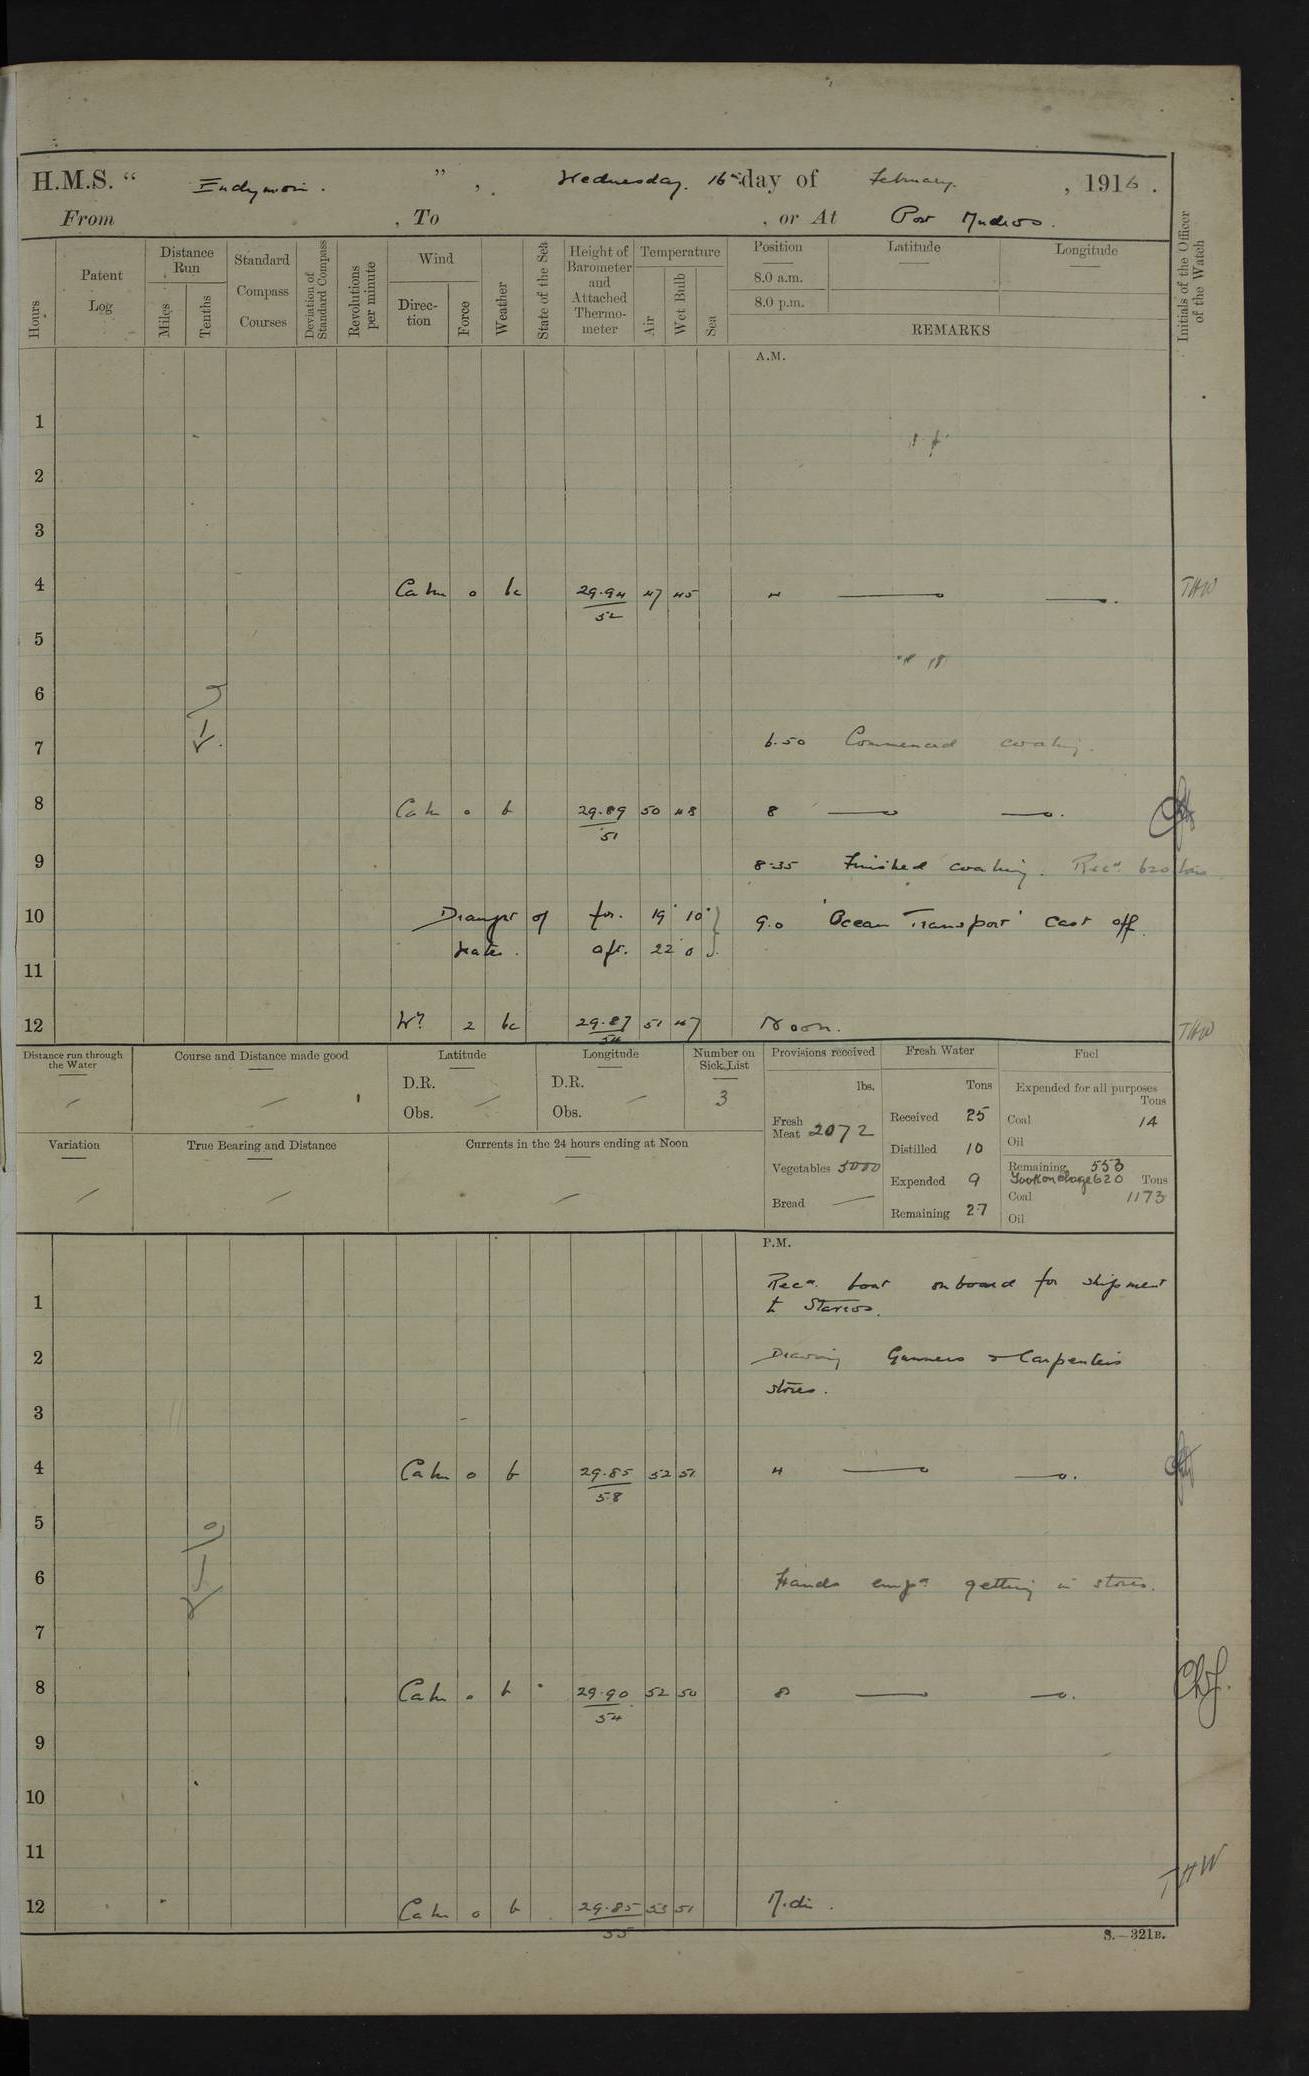 H.M.S. " Endymion . " , Wednesday. 16th day of February. , 1916 .
From , To , or At Port Mudros .
Hours
Patent Log
Distance Run
Miles
Tenths
Standard Compass Courses
Deviation of Standard Compass
Revolutions per minute
Wind
Direc- tion
Force
Weather
State of the Sea
Height of Barometer and Attached Thermo- meter
Temperature
Air
Wet Bulb
Sea
Position
8.0 a.m.
8.0 p.m.
Latitude
Longitude
REMARKS
Initials of the Officer of the Watch
A.M.
1
2
3
4 Calm 0 bc 29.94 47 45 4 THW
52
5
6
7 6.50 Commenced coaling.
8 Calm 0 b 29.89 50 48 8
51
9 8.35 Finished coaling. Recd 620 tons
10 Draught of for. 19' 10" 9.0 'Ocean Transport' cast off.
Water. aft. 22' 0"
11
12 2 bc 29.87 51 47 Noon. THW
54
Distance run through the Water
Course and Distance made good
Latitude
D.R.
Obs.
Longitude
D.R.
Obs.
Number on Sick List
3
Variation
True Bearing and Distance
Currents in the 24 hours ending at Noon
Provisions received
lbs.
Fresh Meat 2072
Vegetables 5000
Bread —
Fresh Water
Tons
Received 25
Distilled 10
Expended 9
Remaining 27
Fuel
Expended for all purposes
Tons
Coal 14
Oil
Remaining 553
Took on charge 620 Tons
Coal 1173
Oil
P.M.
Recd boat onboard for shipment
1 to Stavros.
2 Drawing Gunners & Carpenters
stores.
3
4 Calm 0 b 29.85 52 51 4
58
5
6 Hands empd getting in stores.
7
8 Calm 0 b 29.90 52 50 8
54
9
10
11
12 Calm 0 b 29.85 53 51 THW
55
S.—321B.